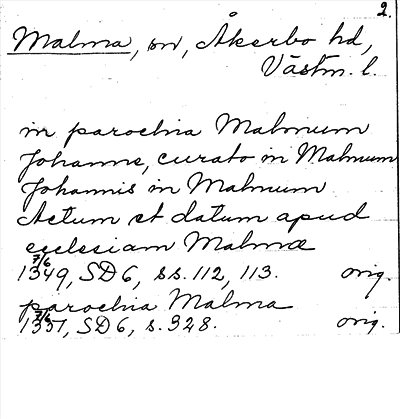 2.
Malma, sn, Åkerbo hd,
Västm. l.
in parochia Malmum
Johanne, curato in Malmum
Johannis in Malmum
Actum et datum apud
ecclesiam Malmæ
1349 7/6, SD 6, ss. 112, 113. orig.
parochia Malma
1351 7/6, SD 6, s. 328. orig.